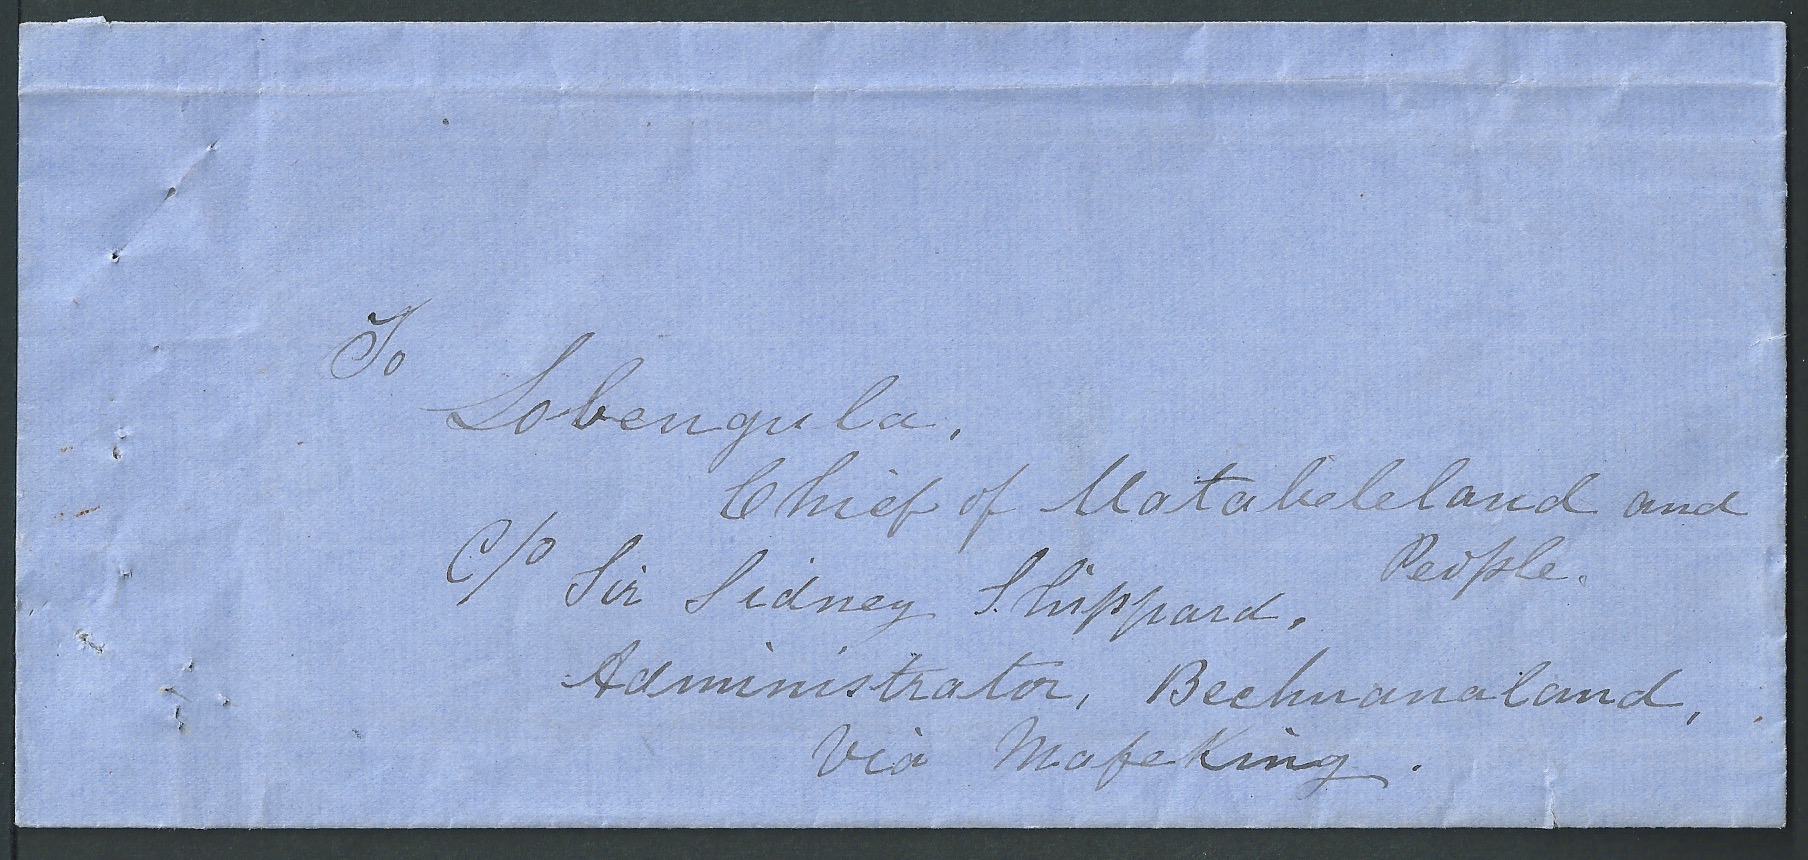 To
Lobengula,
Chief of Matabeleland and
People.
C/o Sir Sidney Shippard,
Administrator, Bechuanaland,
Via Mafeking.